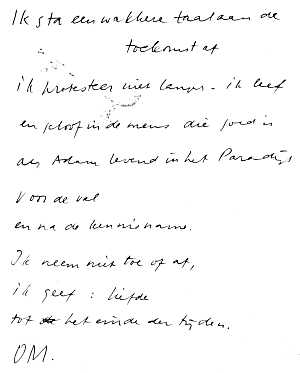 Ik sta een wakkere taal aan de
toekomst af
ik protesteer niet langer - ik leef
en geloof in de mens die goed is
als Adam levend in het Paradijs
voor de val
en na de kennisname.
Ik neem niet toe of af,
ik geef : liefde
tot het einde der tijden.
OM.